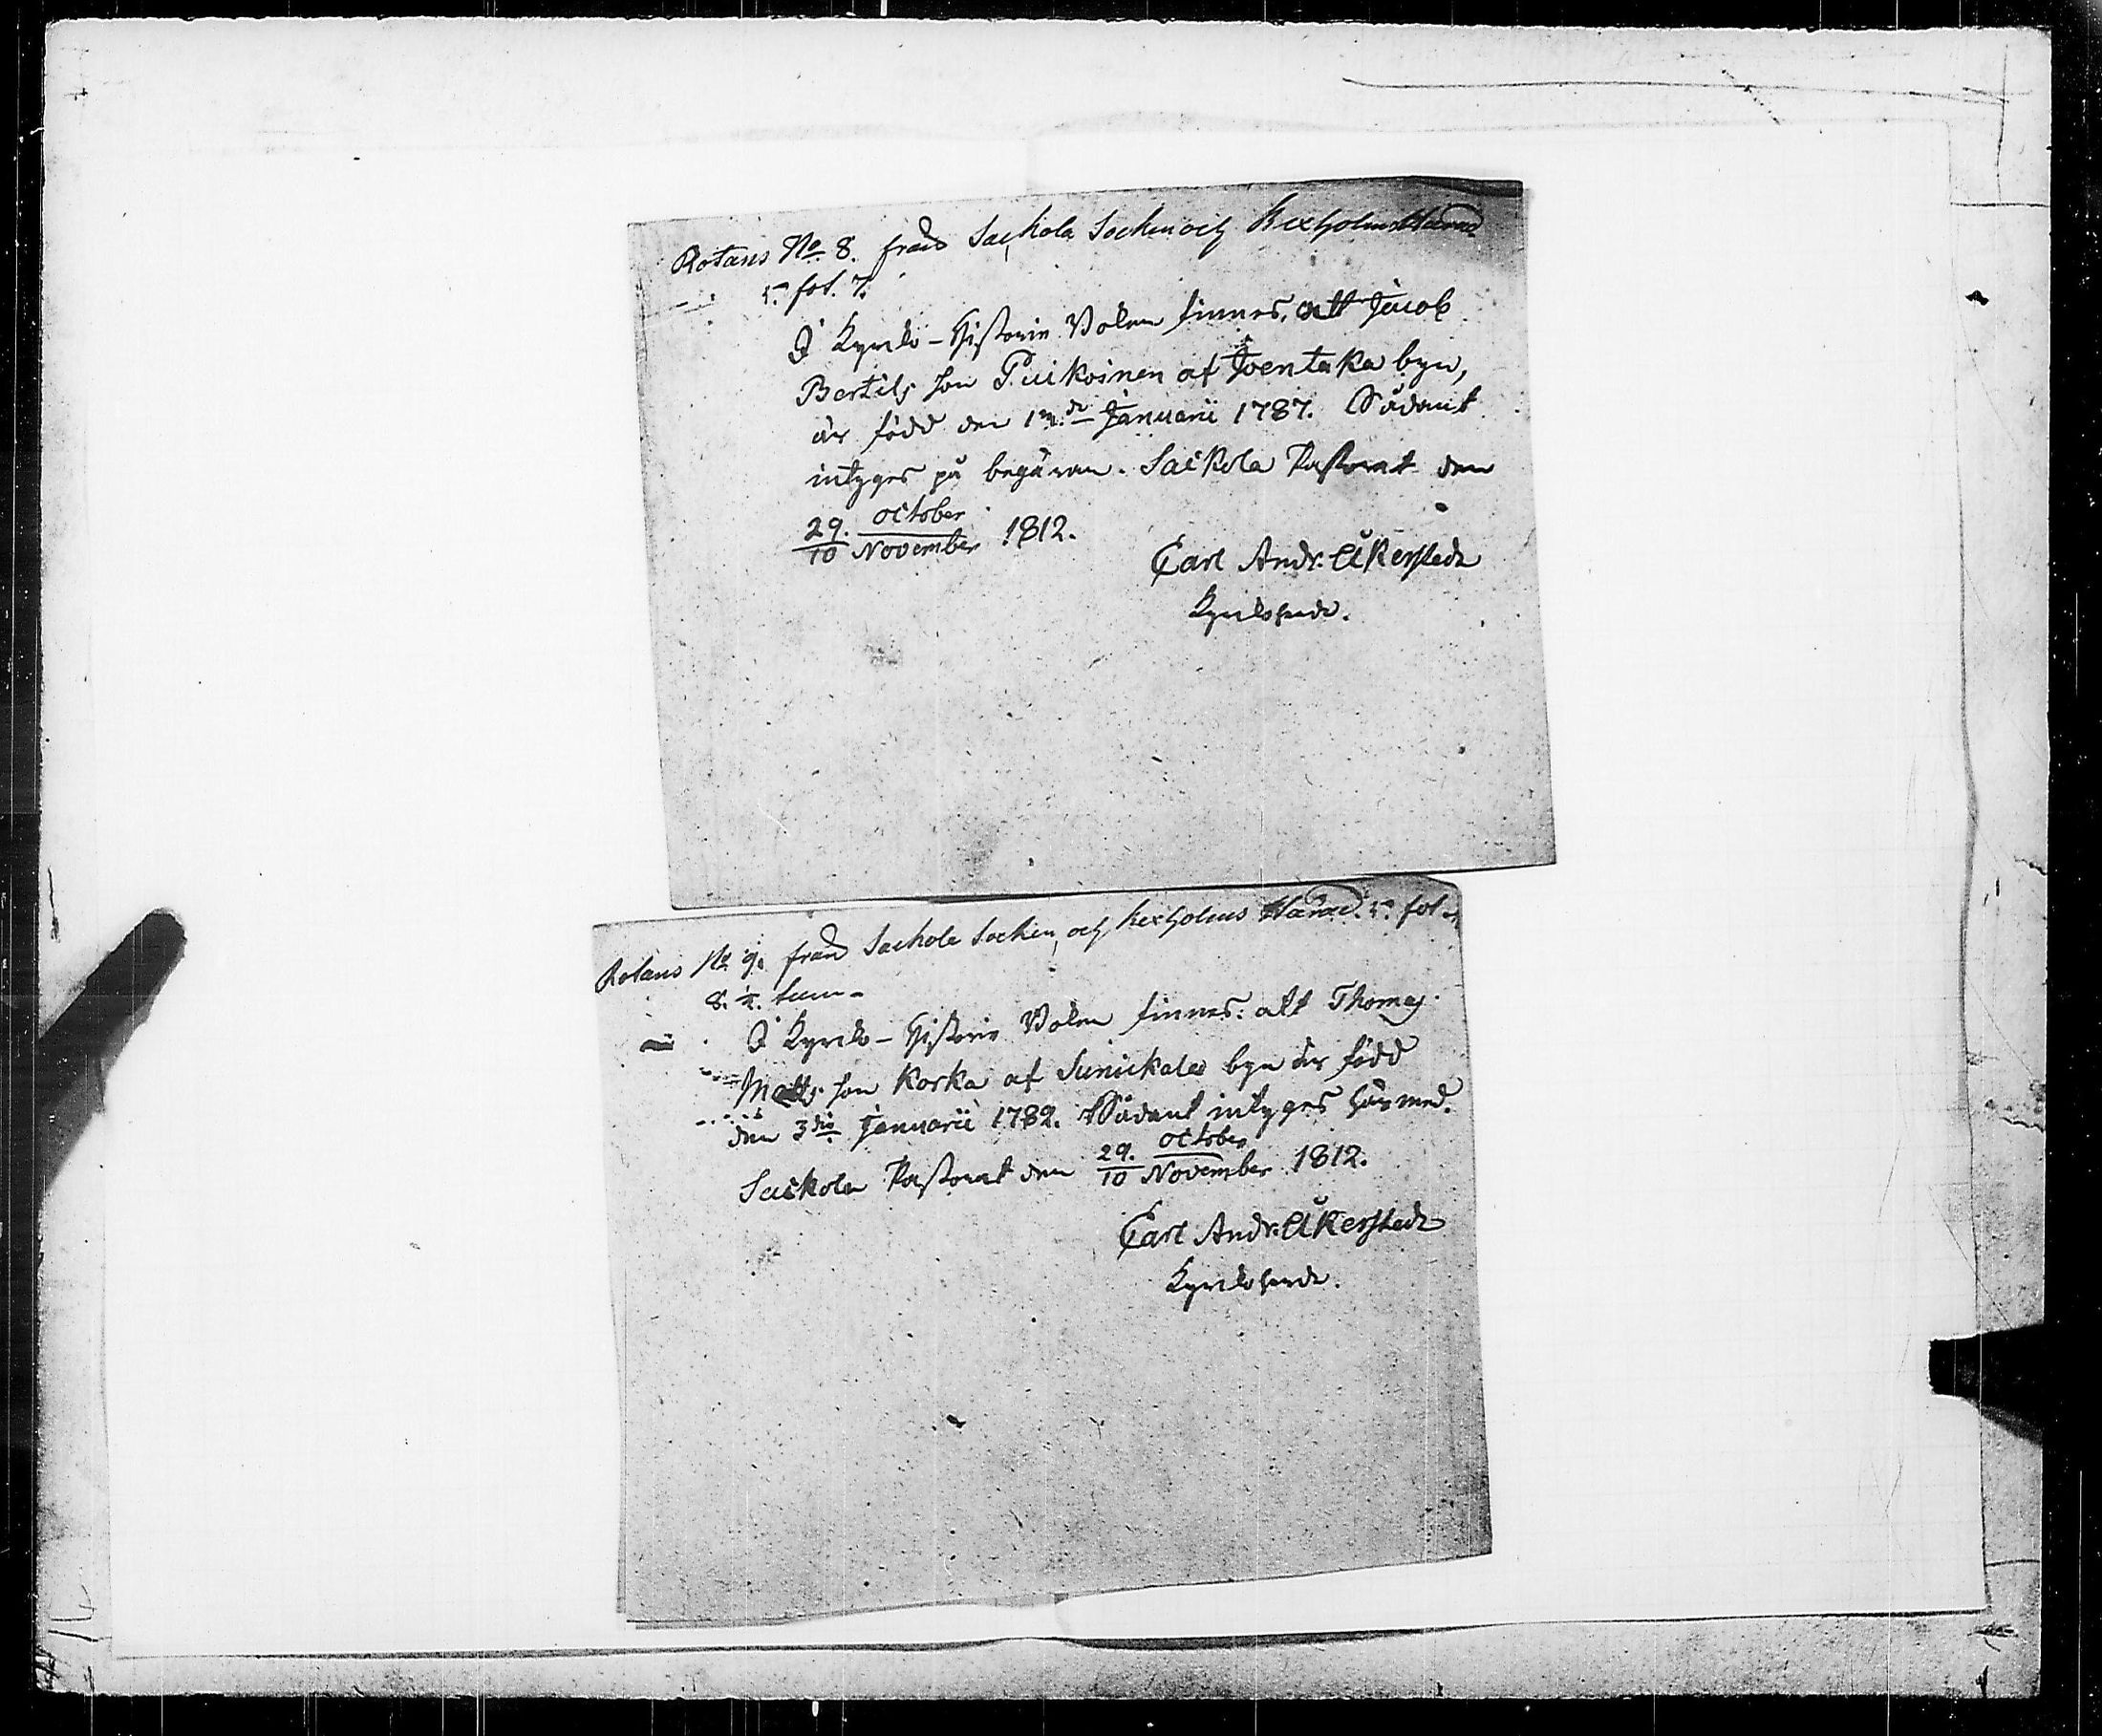 Rotans No. 8. från Sackola Socken och Kexholms Härad
5. fot. 7.
I Kyrko-Historie Boken finnes, att Jacob
Bertils son Puikoinen af Joentaka byn,
är född den 1mo. Januarii 1787. Sådant
intyges på begäran. Saikola Pastorat den
29. october
10 November 1812.
Carl Andr. Åkerstedt
Kyrkoherde.
Rotans No 9. från Sackola Socken och Kexholms Härad. 5. fot.
8. ½. tum
I Kyrko-Historie Boken finnes: att Thomas
Matts son Korka af Sunickala byn är född
den 3dio Januarii 1782. Sådant intyges härmed.
Saikola Pastorat den 29. october
10 November 1812.
Carl Andr. Åkerstedt
Kyrkoherde.